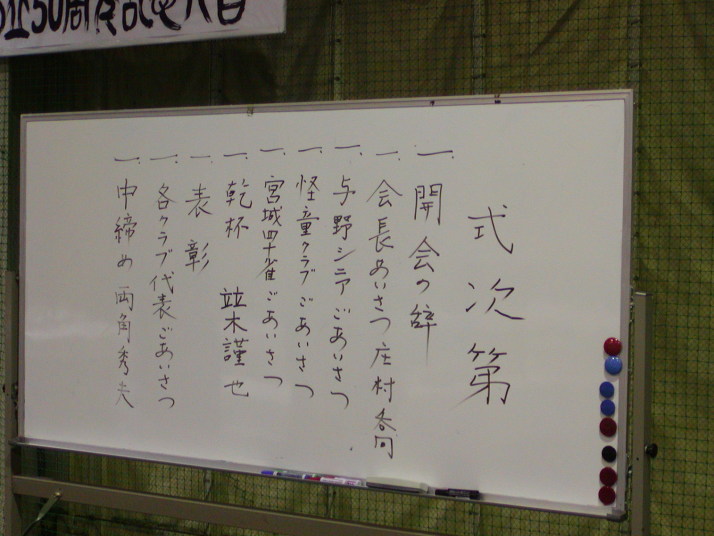 50周年記念大会
式次第
一. 開会の辞
一. 会長あいさつ 庄村
一. 与野シニアごあいさつ
一. 怪童クラブごあいさつ
一. 宮城四十雀ごあいさつ
一. 乾杯 並木謹也
一. 表彰
一. 各クラブ代表ごあいさつ
一. 中締め 両角秀夫